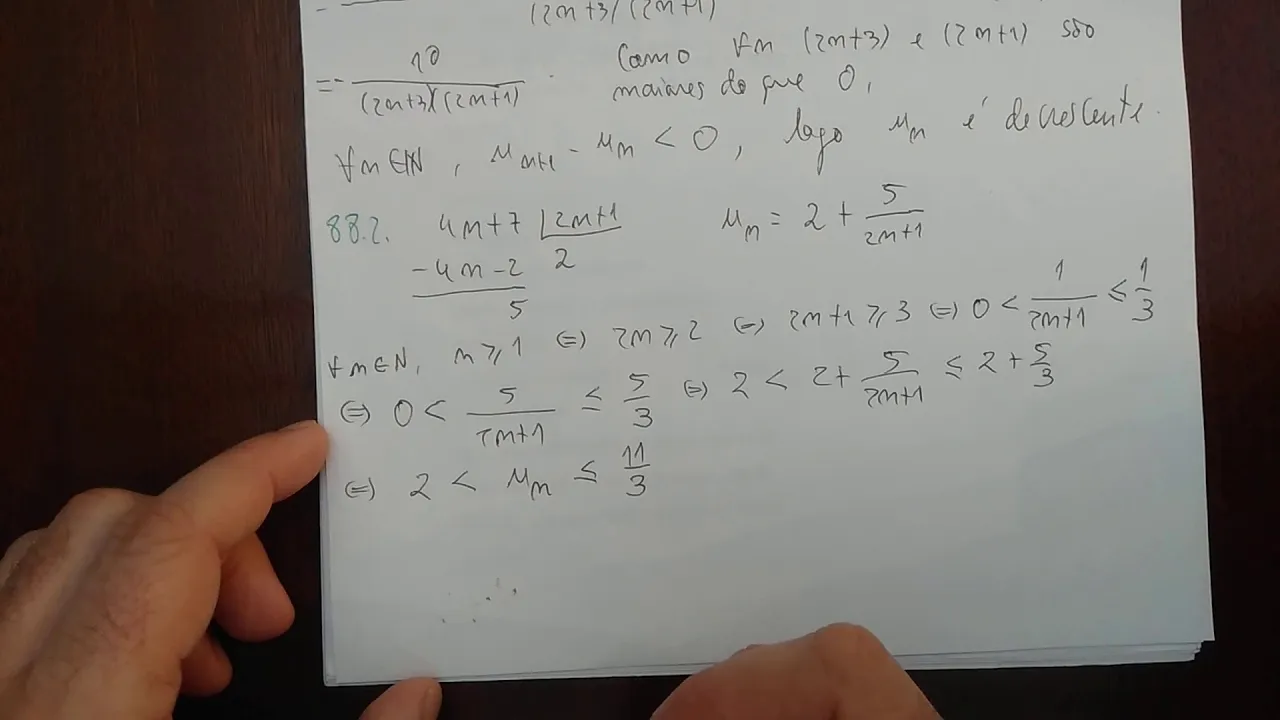 (2n+3)(2n+1)
= - 10 / (2n+3)(2n+1) . Como ∀n (2n+3) e (2n+1) são
maiores do que 0,
∀n∈ℕ, u_{n+1} - u_n < 0, logo u_n é decrescente.
88.2. 4n+7 | 2n+1 u_n = 2 + 5/(2n+1)
-4n-2 2
5
∀n∈ℕ, n ≥ 1 ⇔ 2n ≥ 2 ⇔ 2n+1 ≥ 3 ⇔ 0 < 1/(2n+1) ≤ 1/3
⇔ 0 < 5/(2n+1) ≤ 5/3 ⇔ 2 < 2 + 5/(2n+1) ≤ 2 + 5/3
⇔ 2 < u_n ≤ 11/3